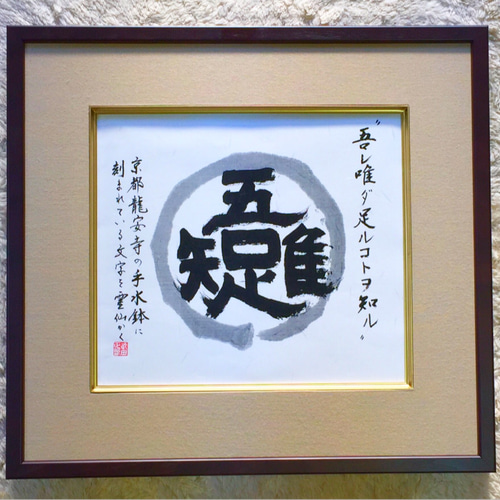 〝吾レ唯ダ足ルコトヲ知ル〟
五
隹
疋
矢
京都龍安寺の手水鉢に
刻まれている文字を雲仙かく